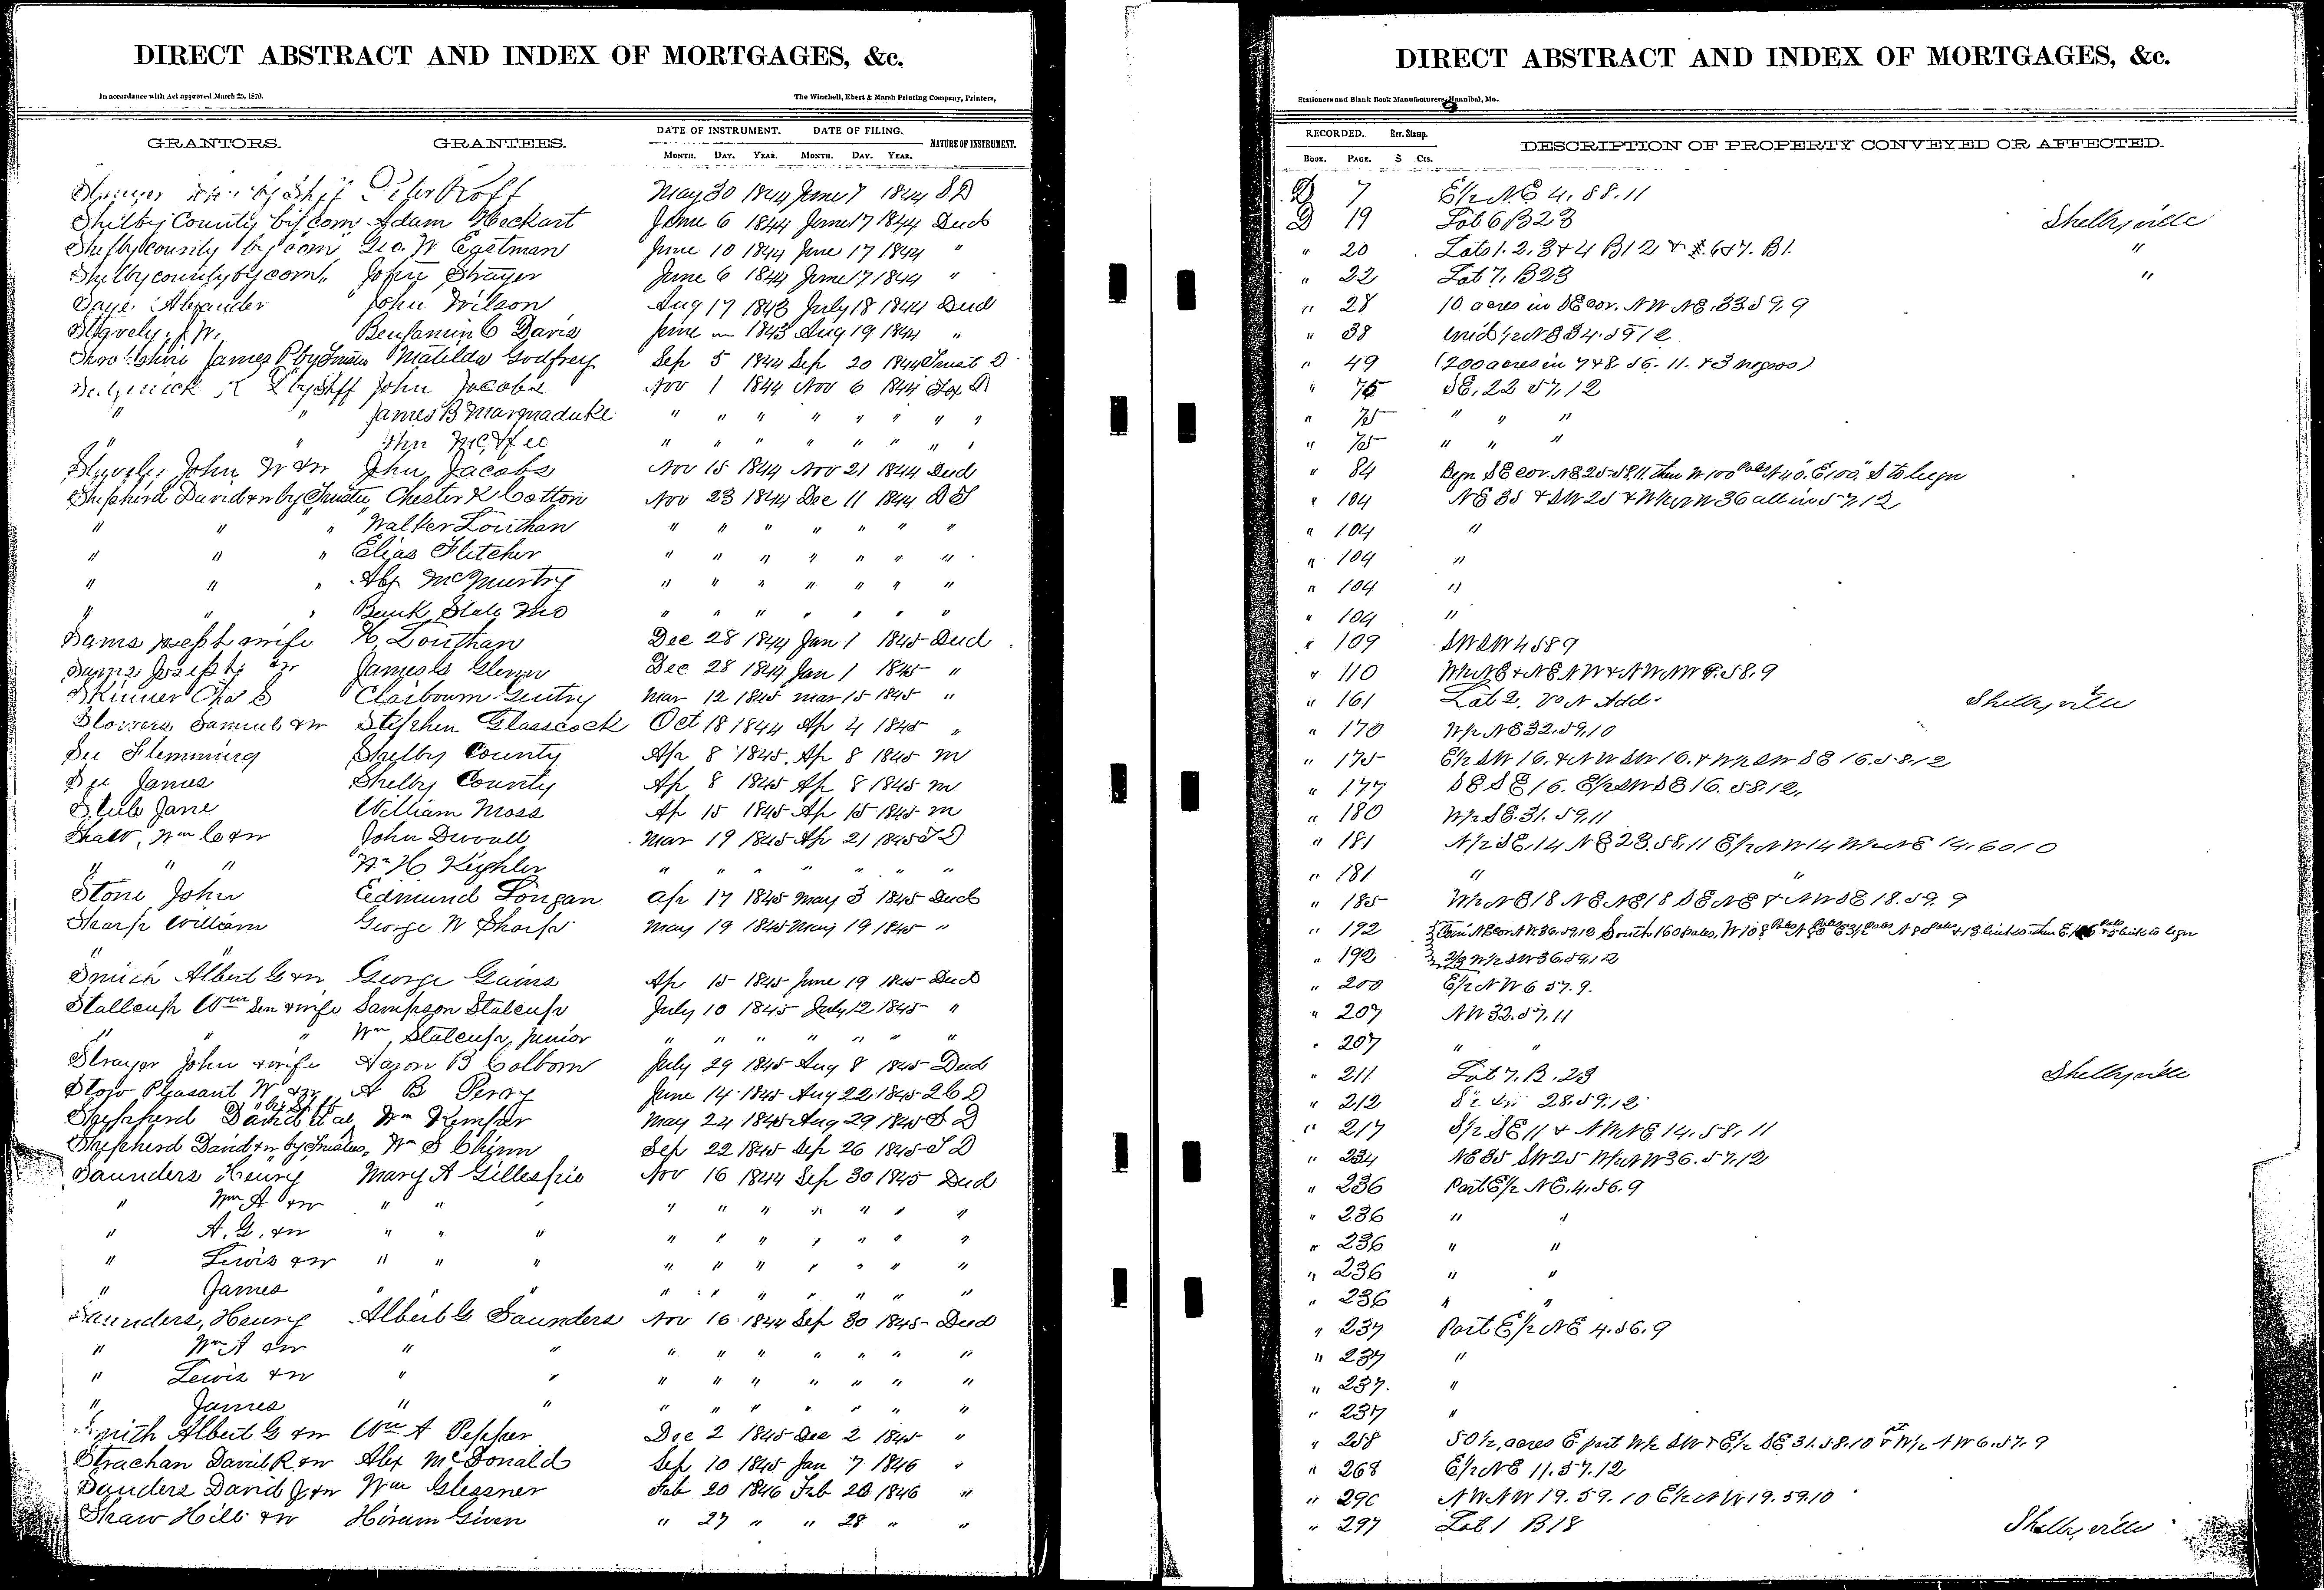 DIRECT ABSTRACT AND INDEX OF MORTGAGES, &c.
In accordance with Act approved March 25, 1870.
The Winchell, Ebert & Marsh Printing Company, Printers,
GRANTORS. GRANTEES. DATE OF INSTRUMENT. DATE OF FILING. NATURE OF INSTRUMENT.
MONTH. DAY. YEAR. MONTH. DAY. YEAR.
Peter Roff May 30 1844 June 7 1844 S D
Shelby County by com Adam Heckart June 6 1844 June 17 1844 Deed
Shelby county by com Geo. W Eastman June 10 1844 June 17 1844 "
Shelby county by com " John Strayer June 6 1844 June 17 1844 "
Alexander John Wilson Aug 17 1843 July 18 1844 Deed
Benjamin C Davis June — 1843 Aug 19 1844 "
James P by Trustee Matilda Godfrey Sep 5 1844 Sep 20 1844 Trust D
K L by Shff John Jacobs Nov 1 1844 Nov 6 1844 D
" " James B Marmaduke " " " " " " " "
" " " " " " " " " "
John W & w John Jacobs Nov 15 1844 Nov 21 1844 Deed
Shepherd David & w by Trustee, Chester K Cotton Nov 23 1844 Dec 11 1844 D T
" " " Walker Louthan " " " " " " "
" " " Elias Fletcher " " " " " " "
" " " Alex McMurtry " " " " " " "
" " " Bank State Mo " " " " " " "
Sams Joseph & wife H Louthan Dec 28 1844 Jan 1 1845 Deed
Sams Joseph & w James Glenn Dec 28 1844 Jan 1 1845 "
Skinner Chas S Clairbourn Gentry Mar 12 1845 Mar 15 1845 "
Samuel & w Stephen Glasscock Oct 18 1844 Ap 4 1845 "
See Flemming Shelby County Ap 8 1845 Ap 8 1845 M
See James Shelby County Ap 8 1845 Ap 8 1845 M
Jane William Moss Ap 15 1845 Ap 15 1845 M
Wm C & w John Duvall Mar 19 1845 Ap 21 1845 T D
" " " Wm H Keighler " " " " " "
Stone John Edmund Longan Ap 17 1845 May 3 1845 Deed
Sharp William George W Sharp May 19 1845 May 19 1845 "
Smith Albert G & w George Gains Ap 15 1845 June 19 1845 Deed
Stallcup Wm Sen & wife Sampson Stalcup July 10 1845 July 12 1845 "
" " " Wm Stalcup, Junior " " " " " "
Strayer John & wife Aaron B Colborn July 29 1845 Aug 8 1845 Deed
Pleasant W & w A B Perry June 14 1845 Aug 22 1845 D
Shepherd David et al " by Shff Wm Kemper May 24 1845 Aug 29 1845 S D
Shepherd David & w by Trustee, Wm S Chinn Sep 22 1845 Sep 26 1845 T D
Saunders Henry Mary A Gillespie Nov 16 1844 Sep 30 1845 Deed
" Wm A & w " " " " " " " " " "
" A. G. & w " " " " " " " " " "
" Lewis & w " " " " " " " " " "
" James " " " " " " " " "
Saunders, Henry Albert G Saunders Nov 16 1844 Sep 30 1845 Deed
" Wm A & w " " " " " " " " "
" Lewis & w " " " " " " " " "
" James " " " " " " " " "
Smith Albert G & w Wm A Pepper Dec 2 1845 Dec 2 1845 "
Strachan David R & w Alex McDonald Sep 10 1845 Jan 7 1846 "
Sanders David J & w Wm Glessner Feb 20 1846 Feb 26 1846 "
Shaw Hill & w Hiram Given " 27 " " 28 " "
DIRECT ABSTRACT AND INDEX OF MORTGAGES, &c.
Stationers and Blank Book Manufacturers, Hannibal, Mo.
RECORDED. Rev. Stamp. DESCRIPTION OF PROPERTY CONVEYED OR AFFECTED.
BOOK. PAGE. $ Cts.
D 7 E½ NE 4. 58. 11
D 19 Lot 6 B 23 Shelbyville
" 20 Lots 1. 2. 3 & 4 B 12 & 6 & 7. B 1. "
" 22 Lot 7. B 23 "
" 28 10 acres in SE cor. NW NE. 33. 59. 9
" 38 34. 59 12
" 49 (200 acres in 7 & 8. 56. 11. & 3 negros)
" 75 SE. 22 57. 12
" 75 " " "
" 75 " " "
" 84 Begn SE cor. NE 25. 58. 11. then W 100 Poles N 40. E 100. S to begn
" 104 NE 35 & SW 25 & W½ NW 36 all in 57. 12
" 104 "
" 104 "
" 104 "
" 104 "
" 109 SW SW 4 58 9
" 110 W½ NE & NE NW & NW NW 9. 58. 9
" 161 Lot 2. Add. Shelbyville
" 170 W½ NE 32. 59. 10
" 175 E½ SW 16. & NW SW 16. & W½ SW SE 16. 58. 12
" 177 SE SE 16. E½ SW SE 16. 58. 12.
" 180 W½ SE. 31. 59. 11
" 181 N½ SE. 14 NE 23. 58. 11 E½ NW 14 W½ NE 14. 60 10
" 181 " "
" 185 W½ NE 18 NE NE 18 SE NE & NW SE 18. 59. 9
" 192 Com NE cor NW 36. 59. 12 South 160 Poles, W 108 Poles
" 192 W½ SW 36. 59. 12
" 200 E½ NW 6 57. 9.
" 207 NW 32. 57. 11
" 207 " "
" 211 Lot 7. B. 23 Shelbyville
" 212 28. 59. 12
" 217 S½ SE 11 & NW NE 14. 58. 11
" 234 NE 35 SW 25 W½ NW 36. 57. 12
" 236 Part E½ NE. 4. 56. 9
" 236 " "
" 236 " "
" 236 " "
" 236 " "
" 237 Part E½ NE 4. 56. 9
" 237 "
" 237. "
" 237 "
" 258 50½ acres E part W½ SW & E½ SE 31. 58. 10 & W½ NW 6. 57. 9
" 268 E½ NE 11. 57. 12
" 290 NW NW 19. 59. 10 E½ NW 19. 59. 10
" 297 Lot 1 B 18 Shelbyville